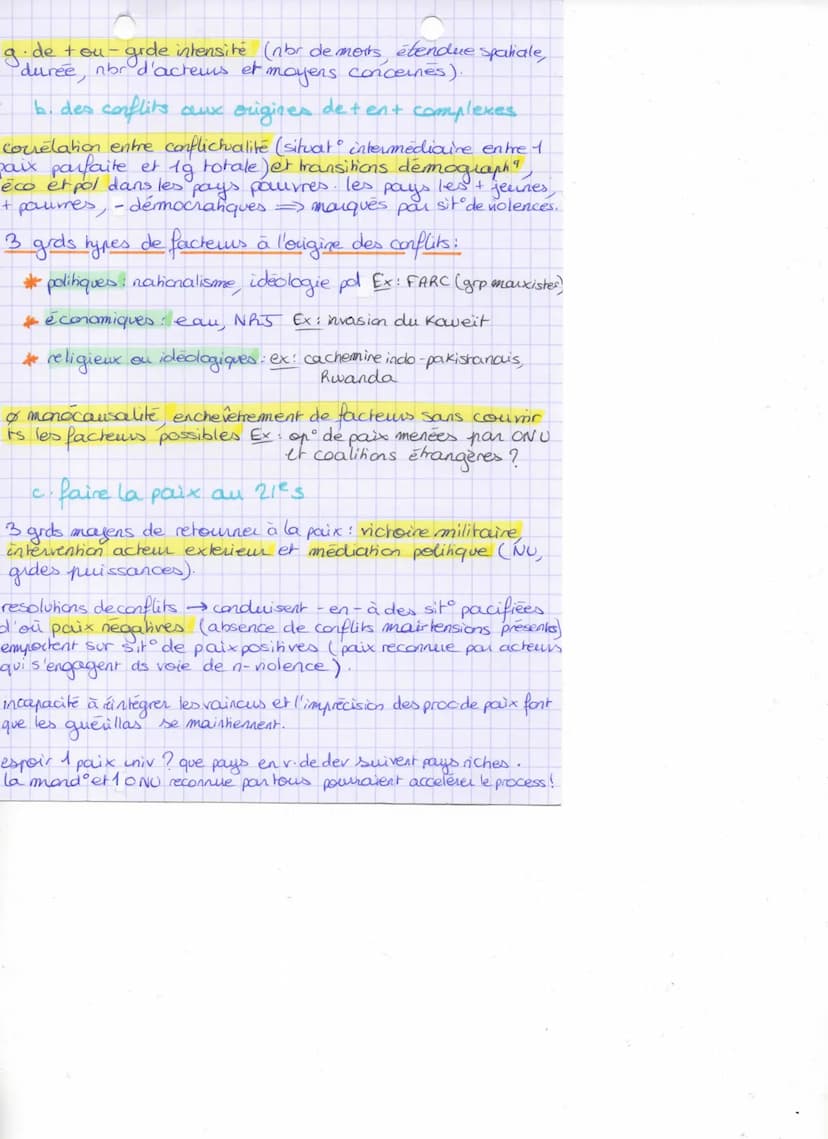 g. de + ou - grde intensité (nbr de morts, étendue spatiale,
durée, nbr d'acteurs et moyens concernés).
b. des conflits aux origines de + en + complexes
corrélation entre conflictualité (situat° intermédiaire entre 1
paix parfaite et 1g totale) et transitions démographq,
éco et pol dans les pays pauvres. les pays les + jeunes,
+ pauvres, - démocratiques ⇒ marqués par sit° de violences.
3 grds types de facteurs à l'origine des conflits:
* politiques: nationalisme, idéologie pol Ex: FARC (grp marxistes)
* économiques: eau, NRJ Ex: invasion du Koweït
* religieux ou idéologiques: ex: cachemire indo-pakistanais,
Rwanda
ø monocausalité, enchevêtrement de facteurs sans couvrir
ts les facteurs possibles Ex: op° de paix menées par ONU
et coalitions étrangères ?
c. faire la paix au 21e s
3 grds moyens de retourner à la paix: victoire militaire,
intervention acteur extérieur et médiation politique (NU,
grdes puissances).
resolutions de conflits → conduisent - en - à des sit° pacifiées
d'où paix négatives (absence de conflits mais tensions présentes)
emportent sur sit° de paix positives (paix reconnue par acteurs
qui s'engagent ds voie de n-violence).
incapacité à intégrer les vaincus et l'imprécision des proc de paix font
que les guérillas se maintiennent.
espoir 1 paix univ ? que pays en v. de dev suivent pays riches.
la mond° et 1 ONU reconnue par tous pourraient accélérer le process!